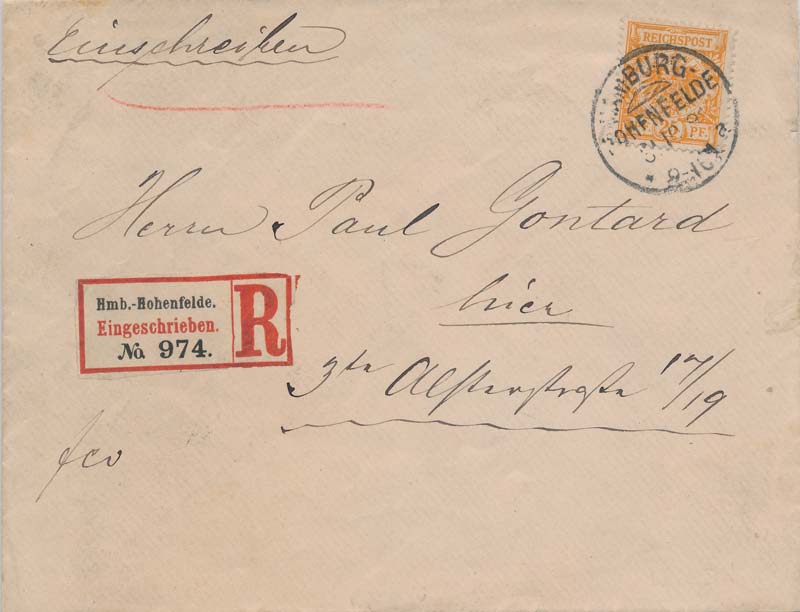 Einschreiben
REICHSPOST
PF.
HAMBURG-
HOHENFELDE
Herrn Paul Gontard
hier
3te Alsterstraße 17/19
Hmb.-Hohenfelde.
Eingeschrieben.
No. 974.
R
fco